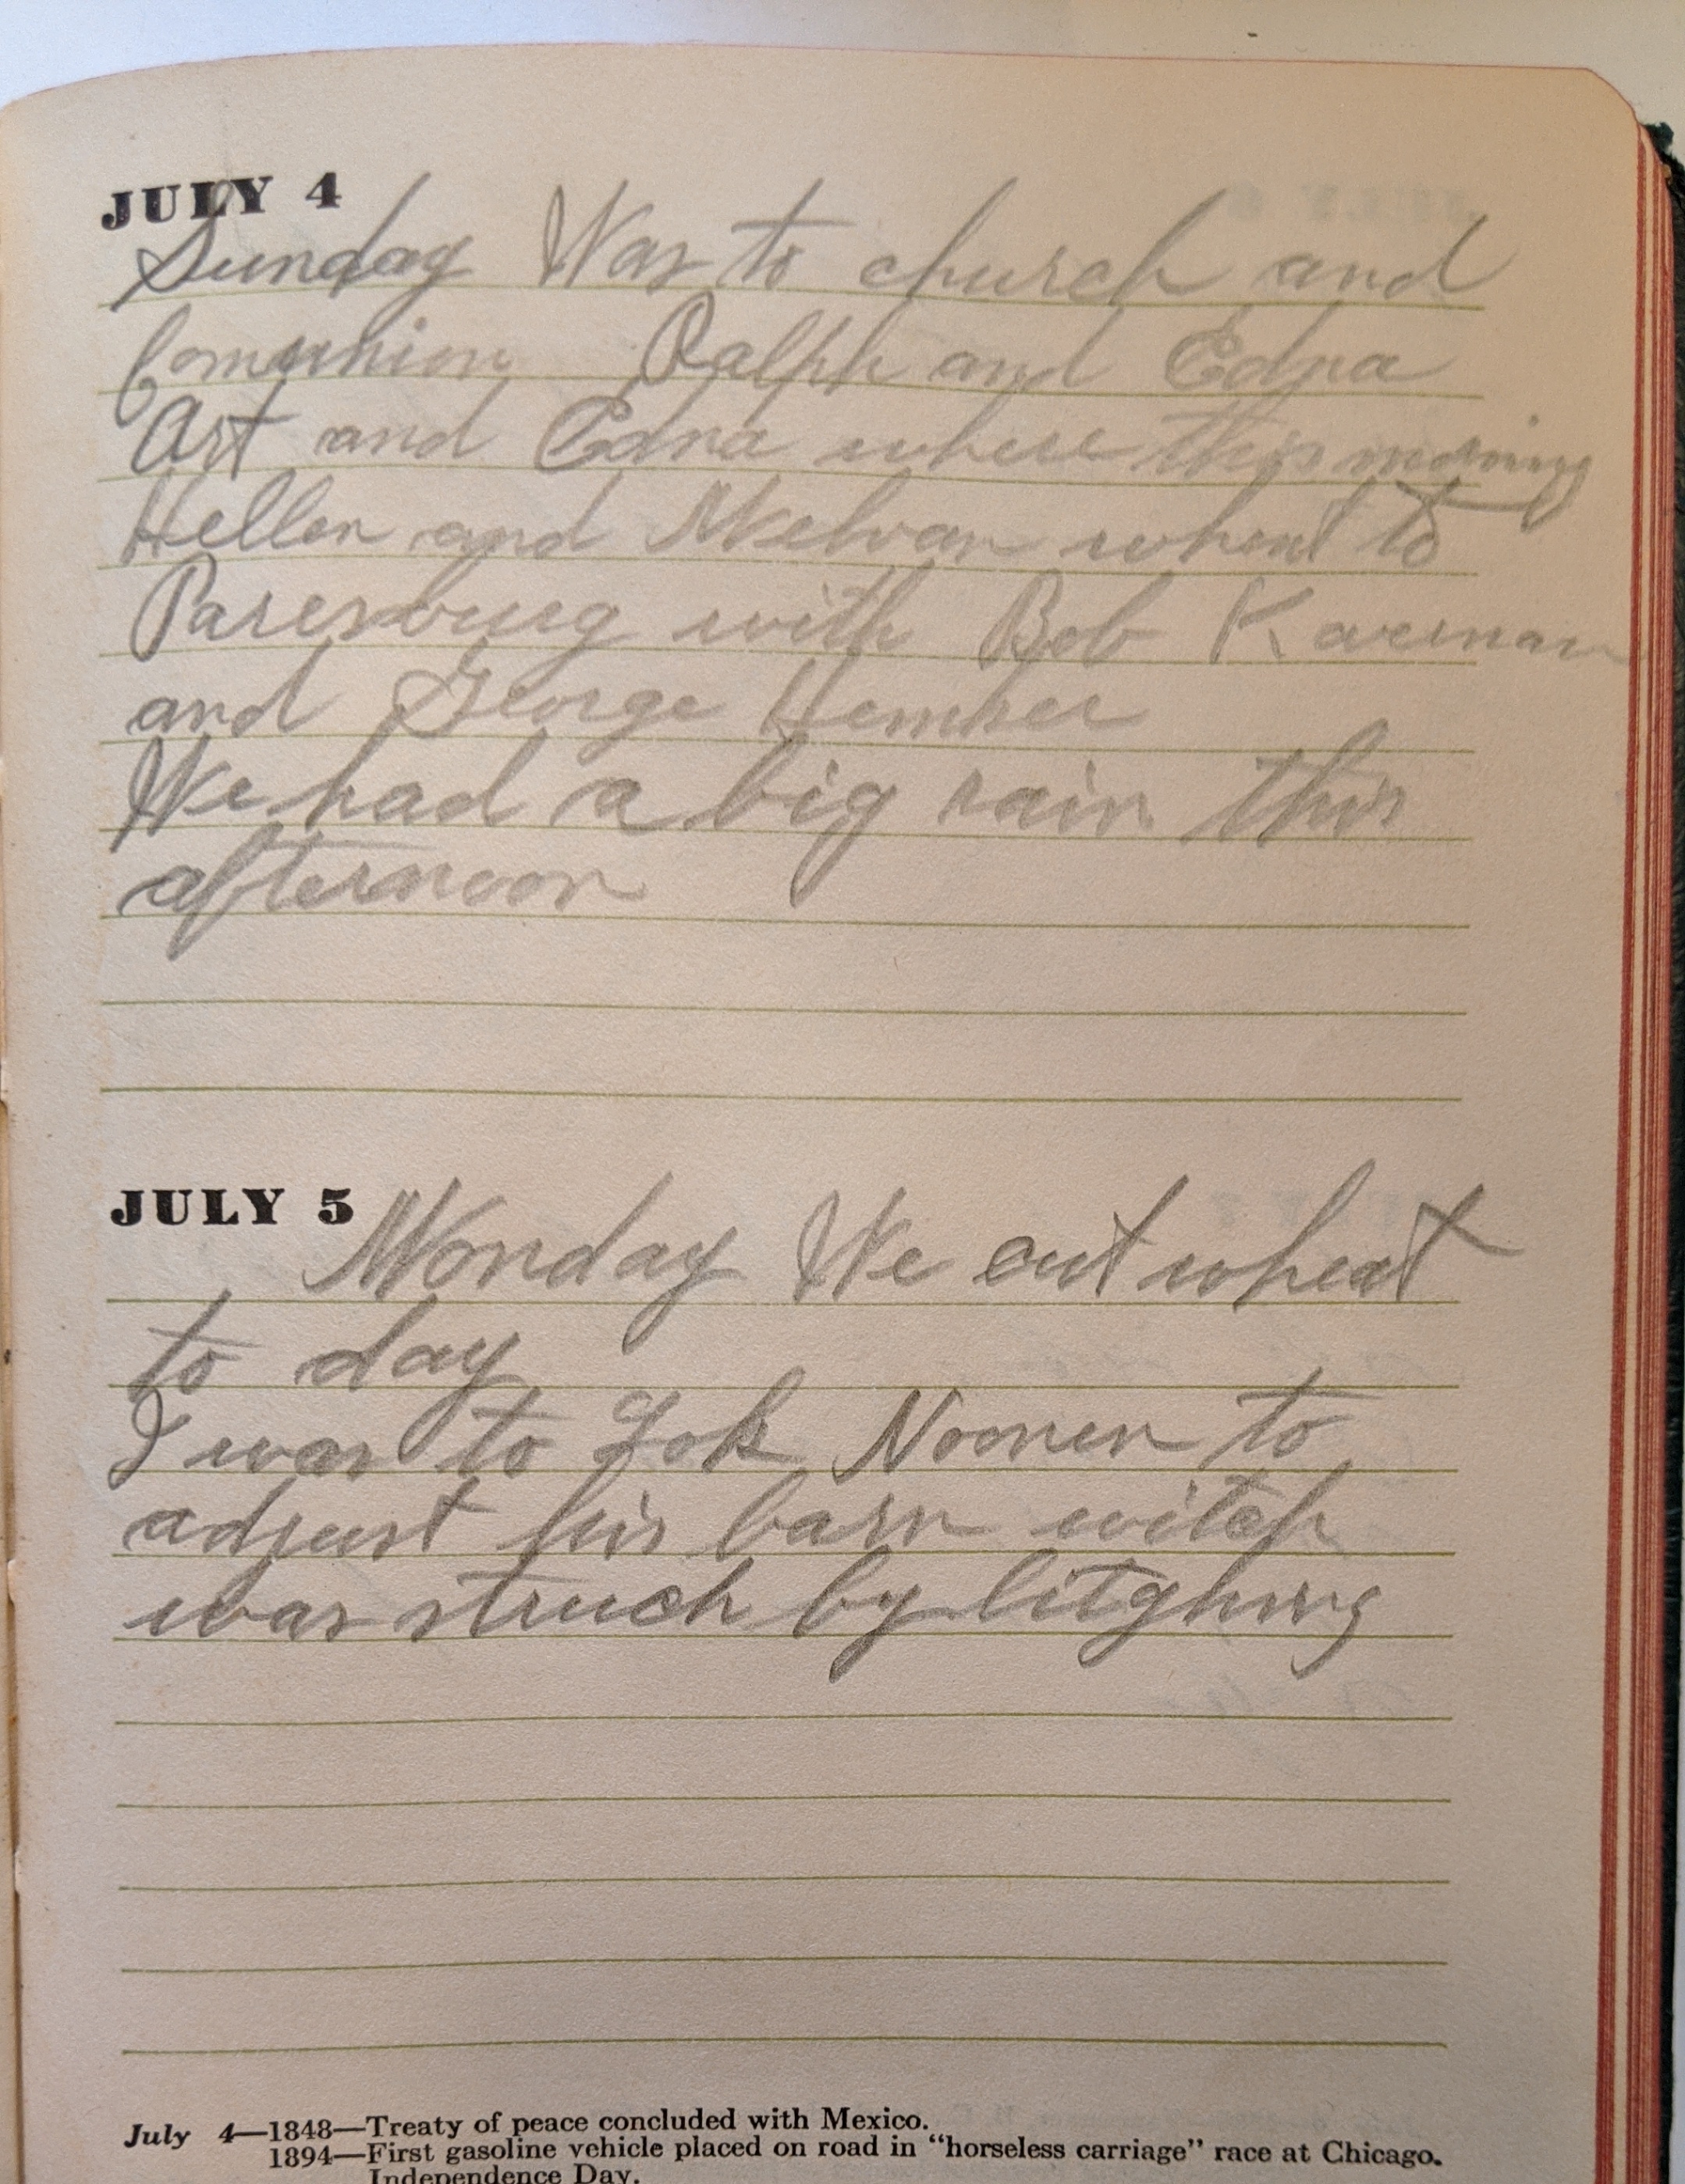 JULY 4
Sunday Was to church and
Comunion Ralph and Edna
Art and Edna where this morning
Hellen and Melvan whent to
Paresburg with Bob Kaernan
and George Hemker
We had a big rain this
afternoon
JULY 5
Monday We cut wheat
to day
I was to Nooner to
adjust his barn witch
was struck by litghing
July 4—1848—Treaty of peace concluded with Mexico.
1894—First gasoline vehicle placed on road in “horseless carriage” race at Chicago.
Independence Day.